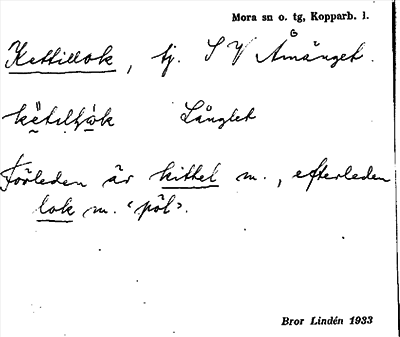 Mora sn o. tg, Kopparb. l.
Kettillok, tj. S V Åmänget.
Långlet
Förleden är kittel m., efterleden
lok m. 'pöl'.
Bror Lindén 1933